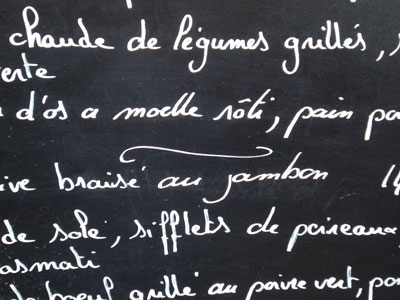 chaude de légumes grillés,
verte
d'os a moelle rôti, pain
braisé au jambon
de sole, sifflets de poireaux
basmati
boeuf grillé au poivre vert,